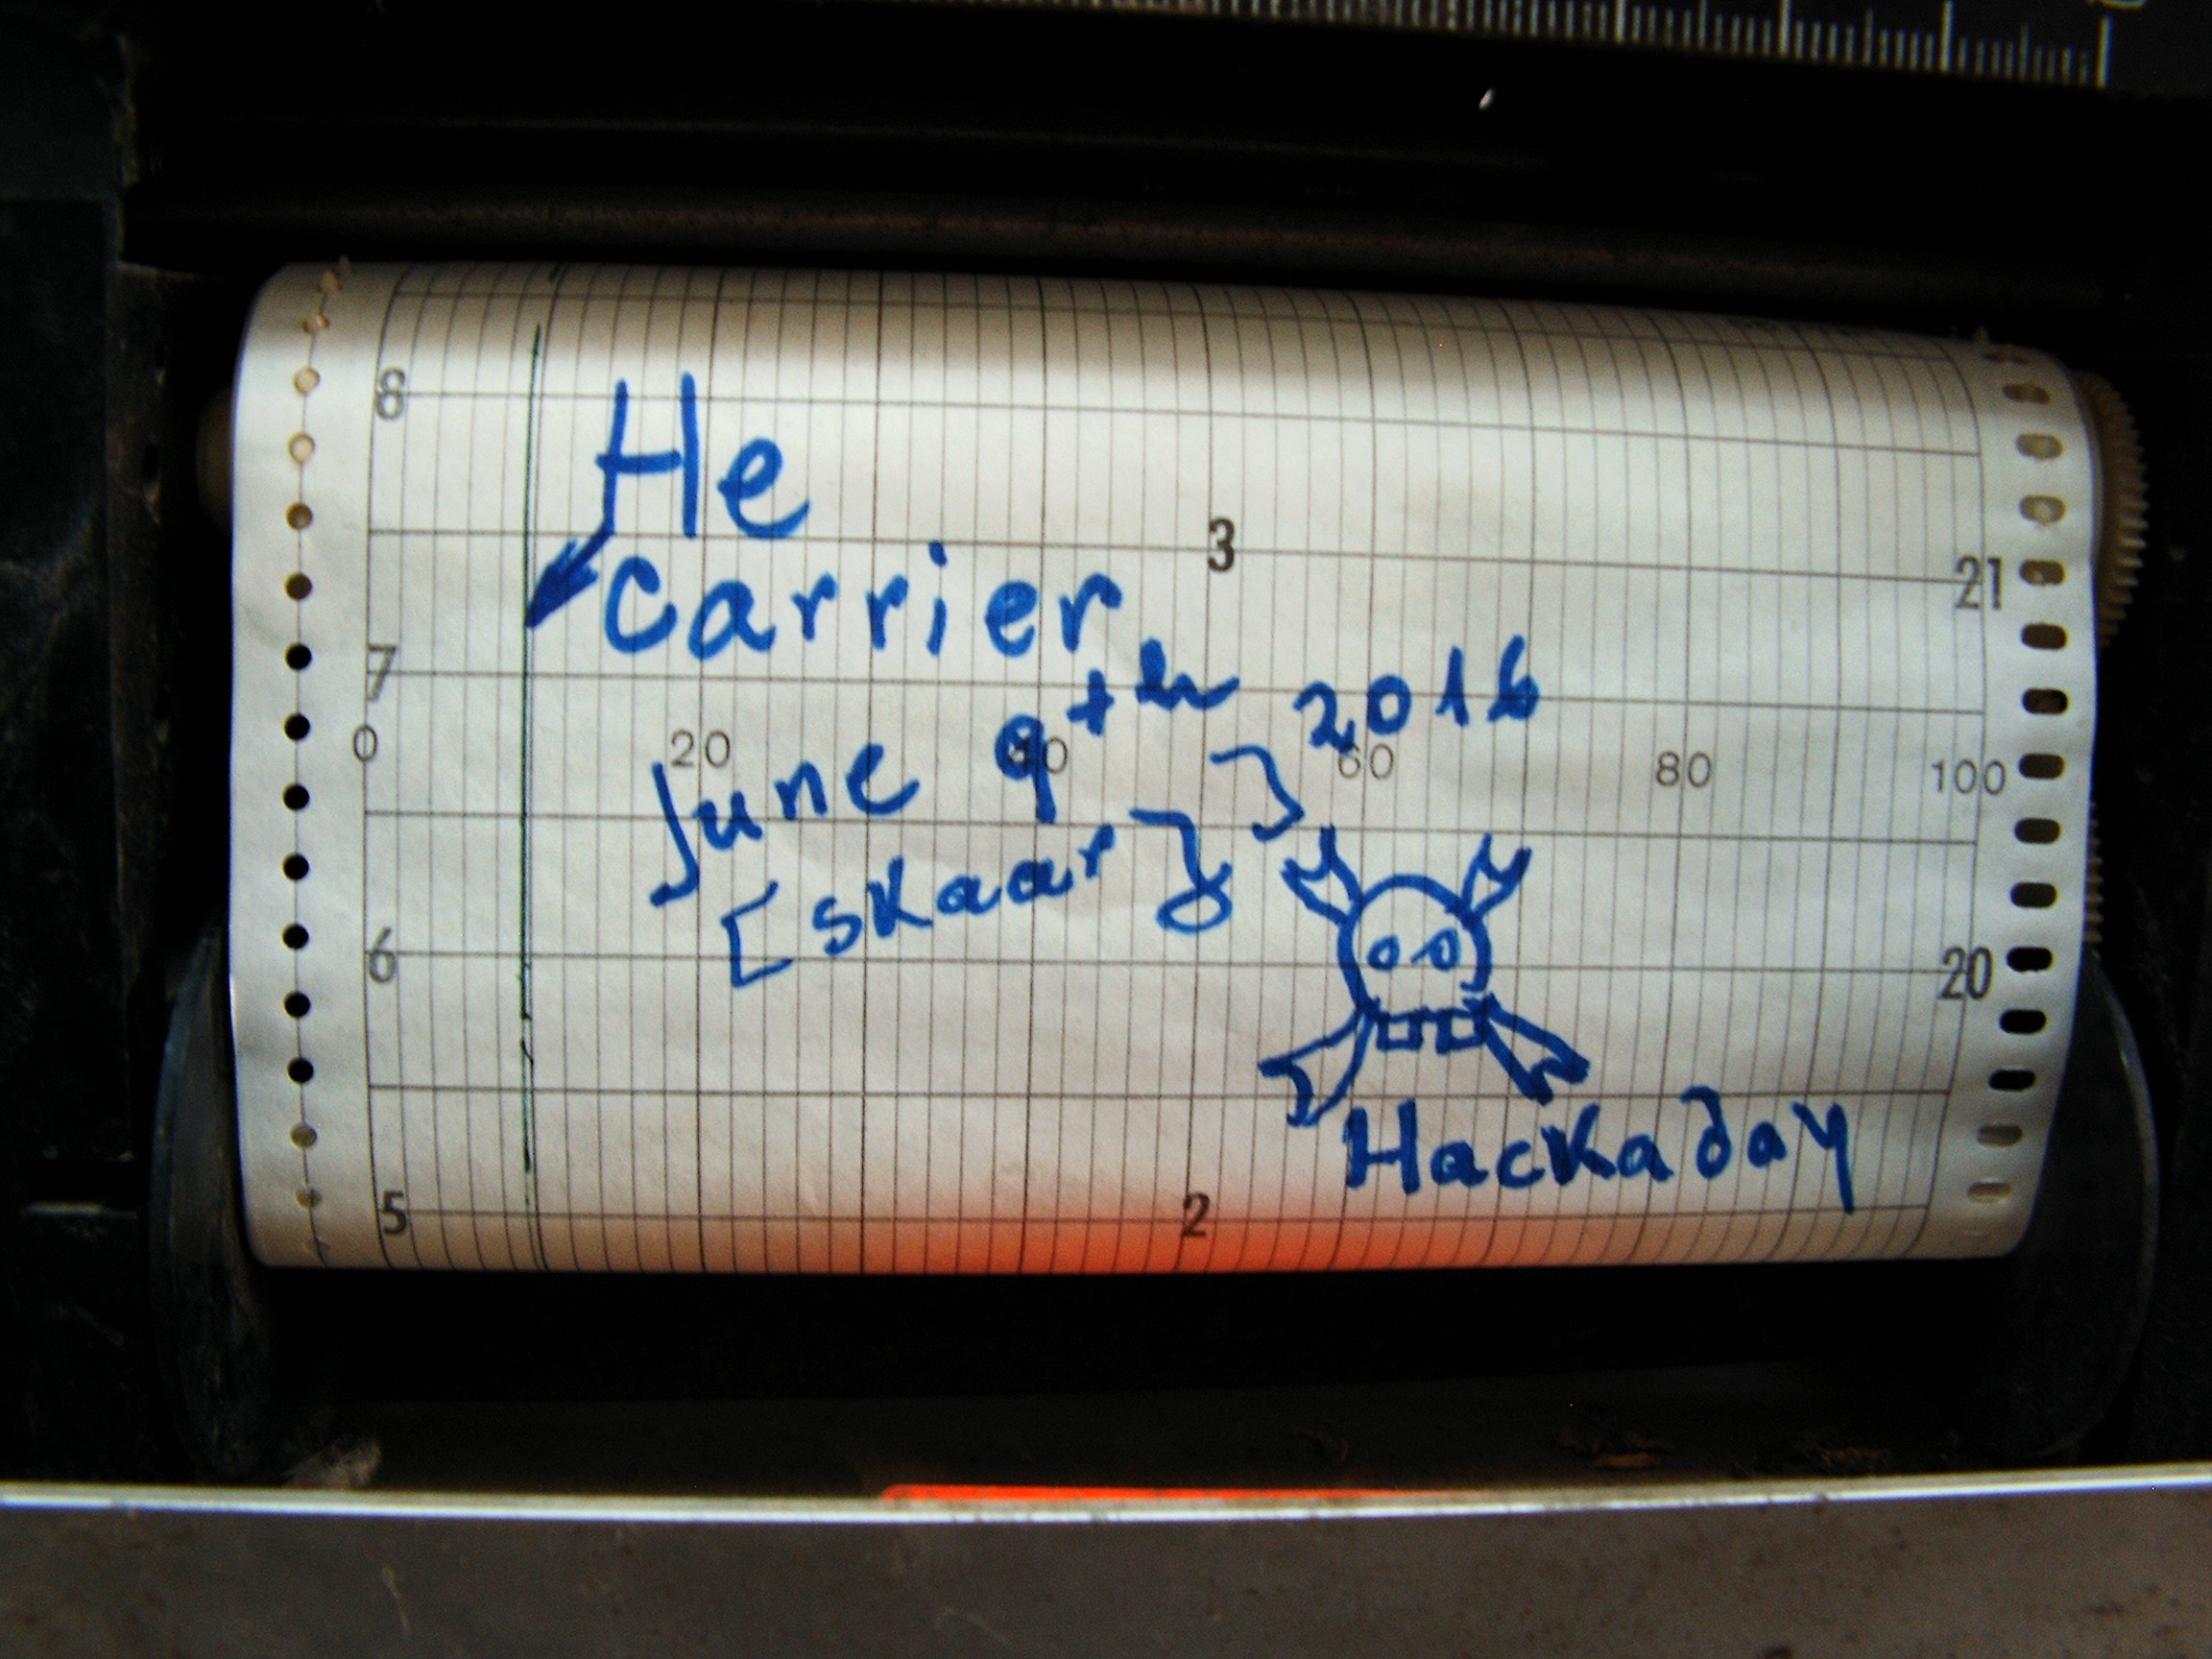 8
He
3
carrier
21
7
June 9th 2016
0 20 40 60 80 100
[skaar]
6
20
Hackaday
5
2